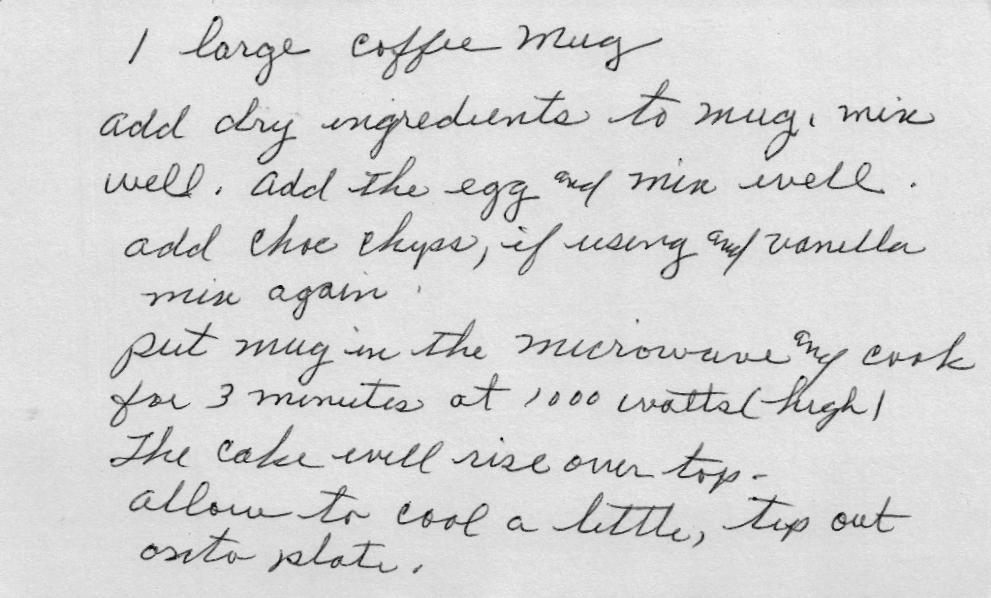 1 large coffee mug
add dry ingredients to mug, mix
well. add the egg and mix well.
add choc chips, if using and vanilla
mix again.
put mug in the microwave and cook
for 3 minutes at 1000 watts (high)
The cake will rise over top -
allow to cool a little, tip out
onto plate.